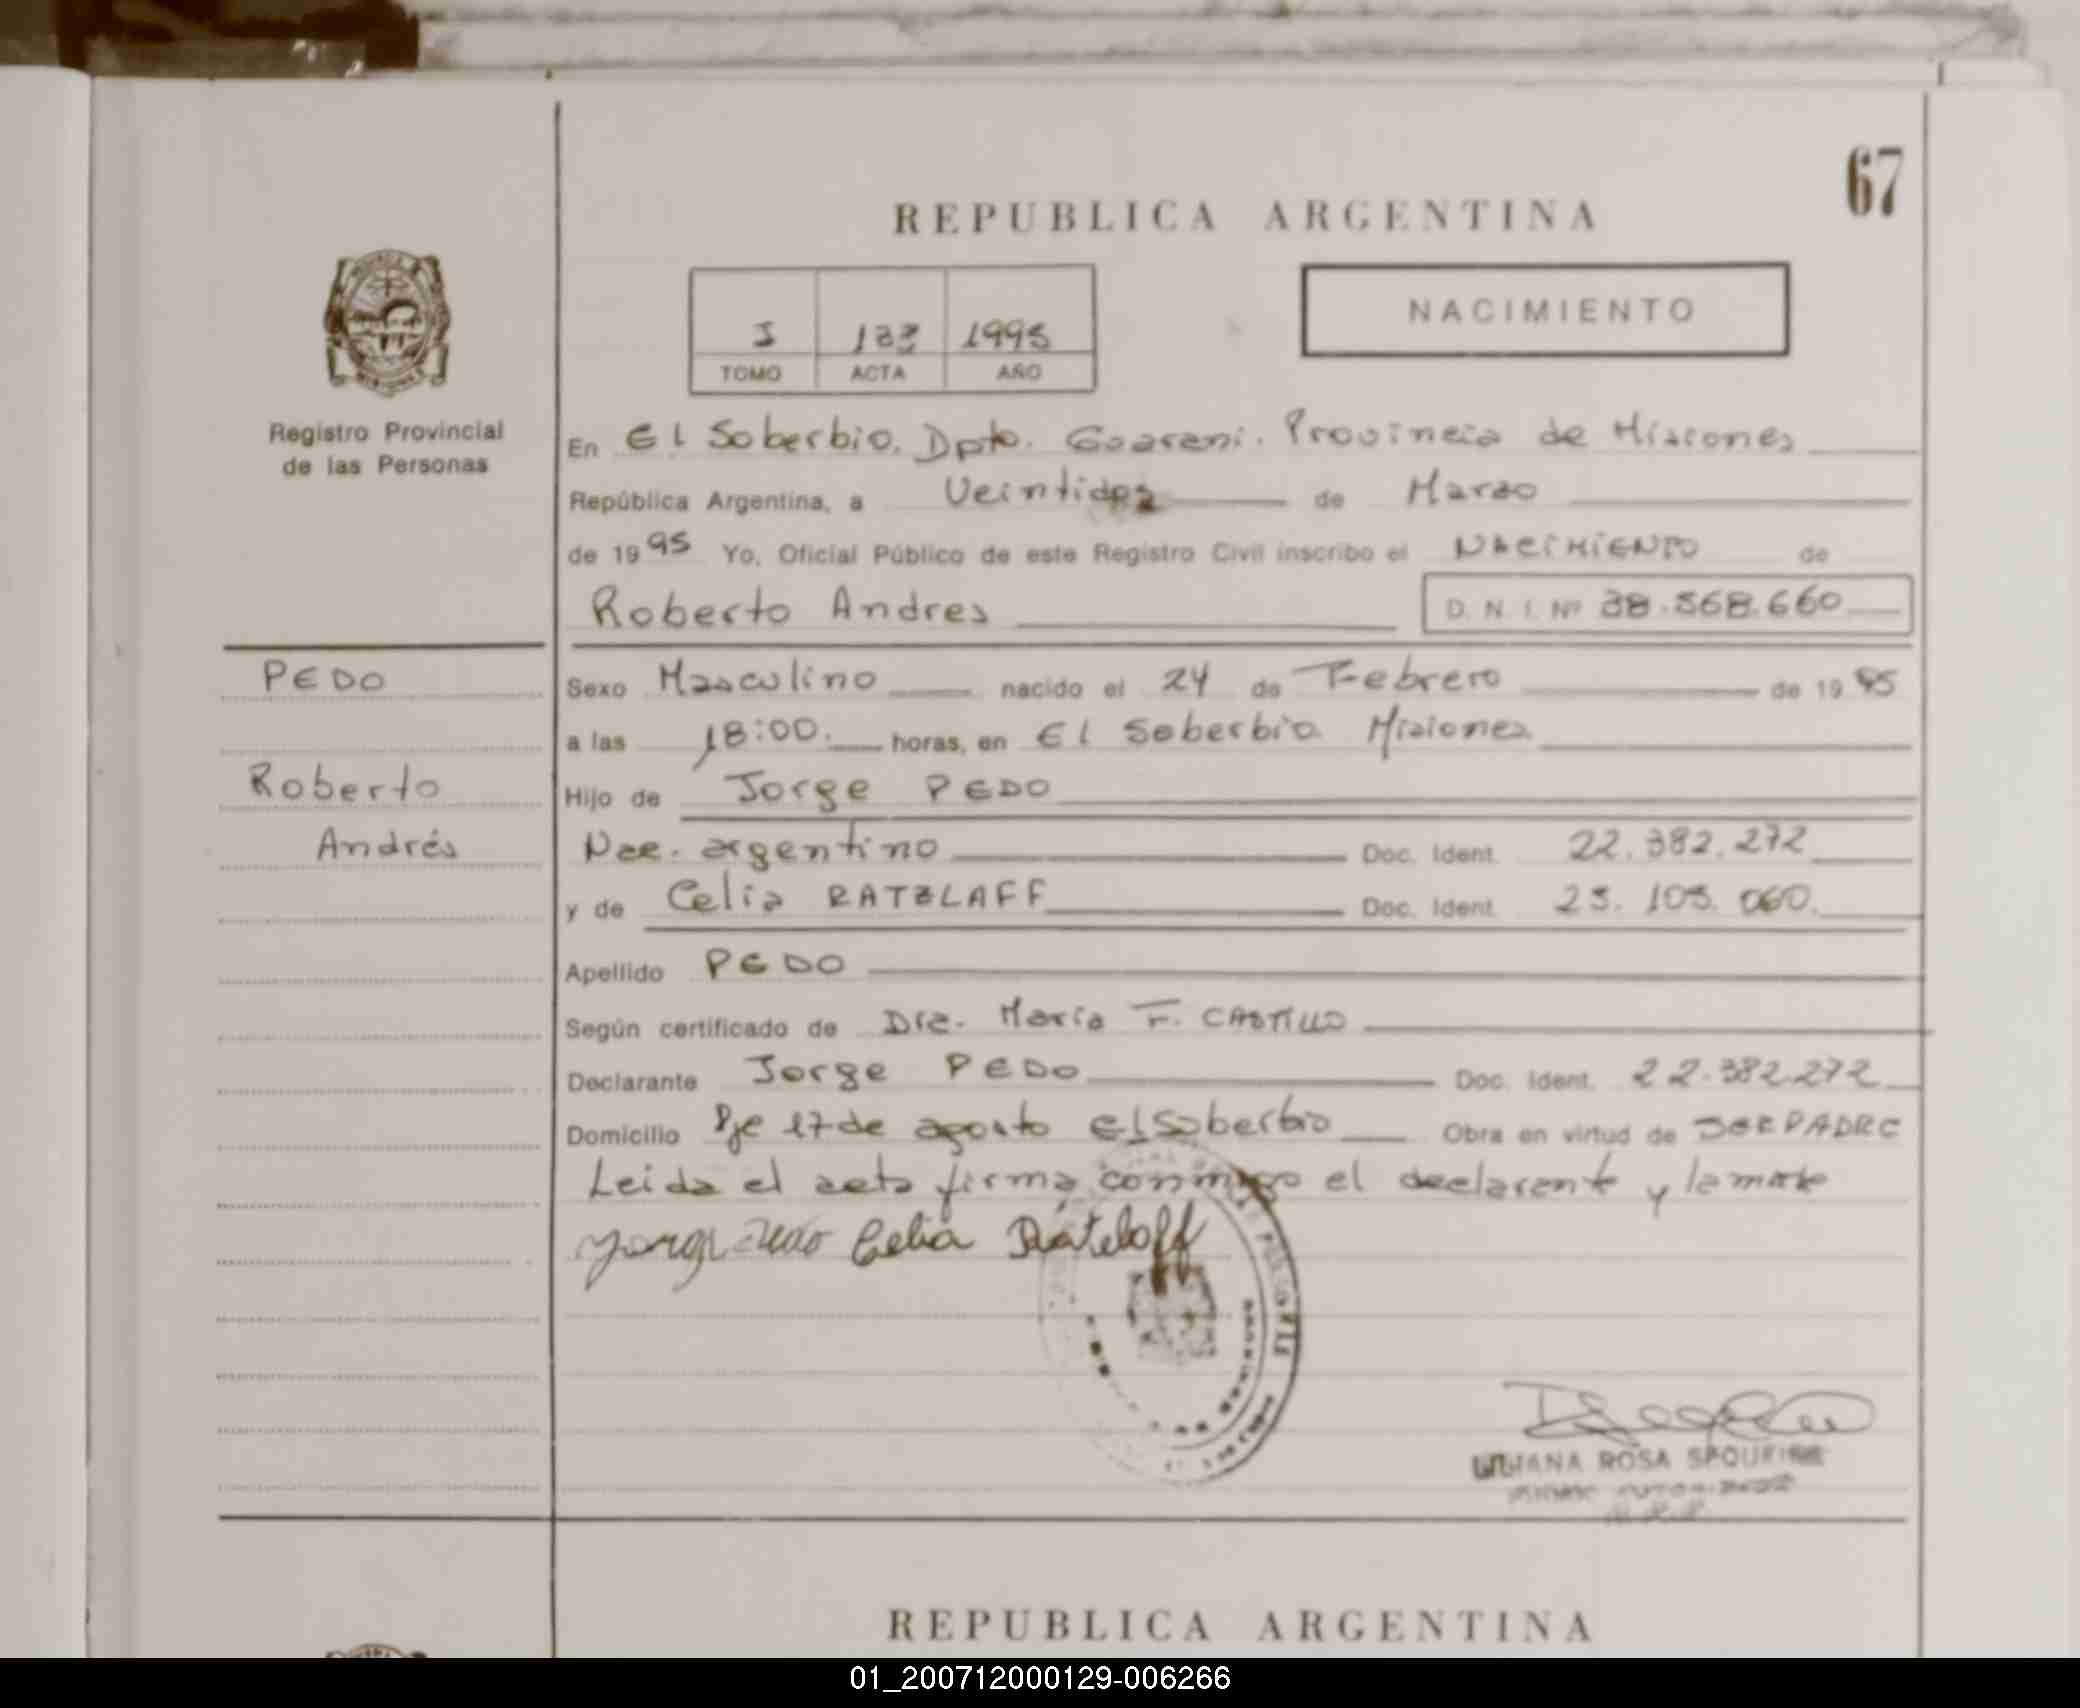 67
REPUBLICA ARGENTINA
NACIMIENTO
I 133 1995
TOMO ACTA AÑO
Registro Provincial
de las Personas
En El Soberbio, Dpto. Guarani. Provincia de Misiones
República Argentina, a Veintidos de Marzo
de 1995 Yo, Oficial Público de este Registro Civil inscribo el NACIMIENTO de
Roberto Andres D. N. I. Nº 38.568.660
PEDO
Roberto
Andrés
Sexo Masculino nacido el 24 de Febrero de 1995
a las 18:00. horas, en El Soberbio Misiones
Hijo de Jorge PEDO
Nac. argentino Doc. Ident. 22.382.272
y de Celia RATZLAFF Doc. Ident. 23.103.060.
Apellido PEDO
Según certificado de Dra. Maria F. CASTILLO
Declarante Jorge PEDO Doc. Ident. 22.382.272
Domicilio Pje 17 de agosto el Soberbio Obra en virtud de SER PADRE
Leida el acta firma conmigo el declarante y la madre
Celia Ratzlaff
LILIANA ROSA SEQUEIRA
REPUBLICA ARGENTINA
01_200712000129-006266